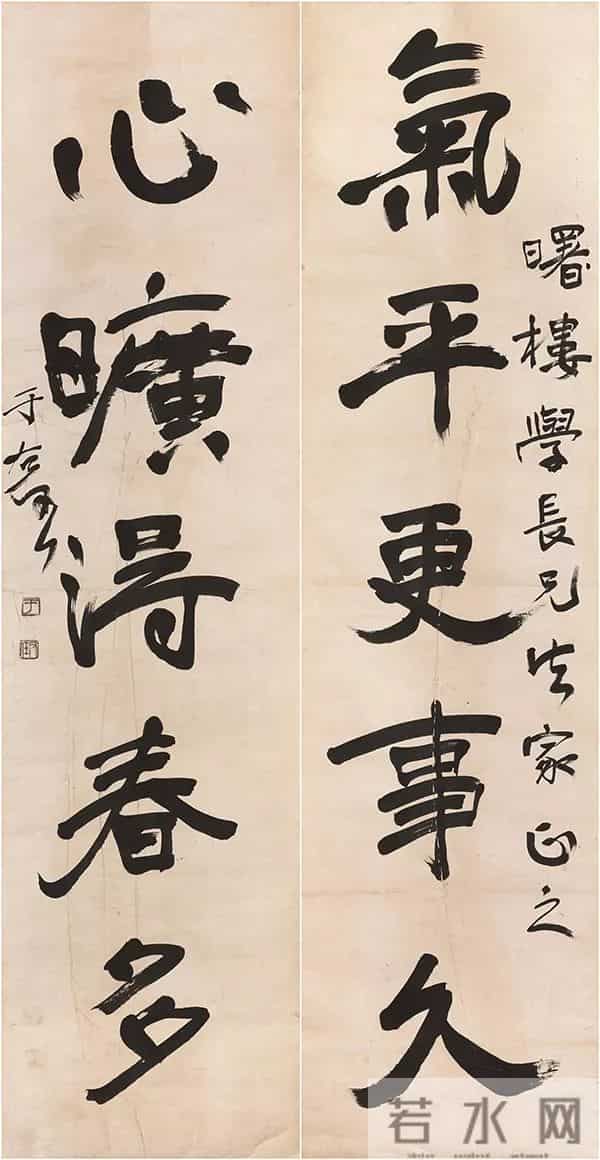 曙樓學長兄法家正之
氣平更事久
心曠得春多
于右任
若水网